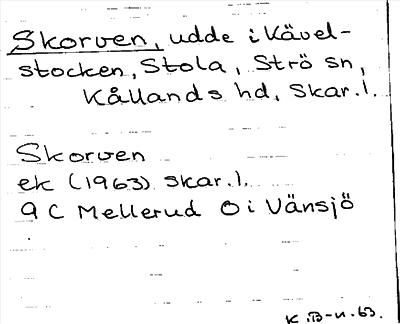 Skorven, udde i Kävel-
stocken, Stola, Strö sn,
Kållands hd, Skar.l.
Skorven
ek (1963) Skar.l.
9 C Mellerud Ö i Vänsjö
K.B-n.63.